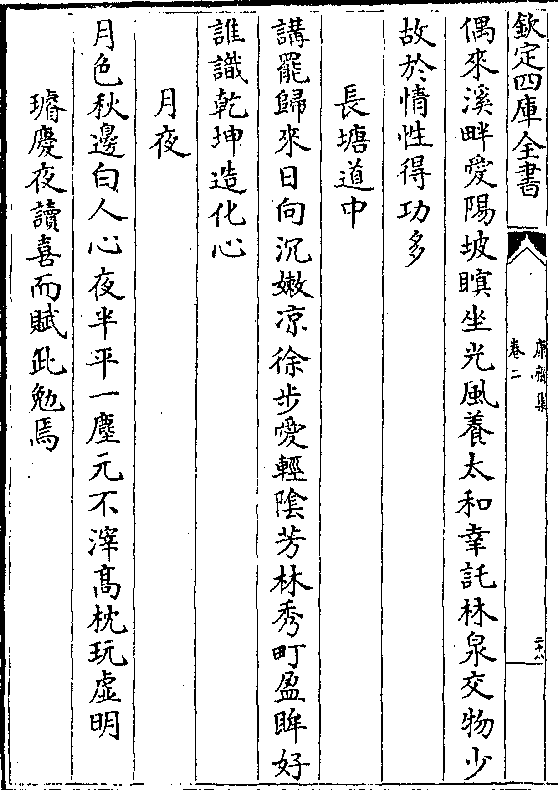 欽定四庫全書
康齋集
卷二
二十八
偶來溪畔愛陽坡瞑坐光風養太和幸託林泉交物少
故於情性得功多
長塘道中
講罷歸來日向沉嫩凉徐步愛輕陰芳林秀町盈眸好
誰識乾坤造化心
月夜
月色秋邊白人心夜半平一塵元不滓高枕玩虛明
璿慶夜讀喜而賦此勉焉